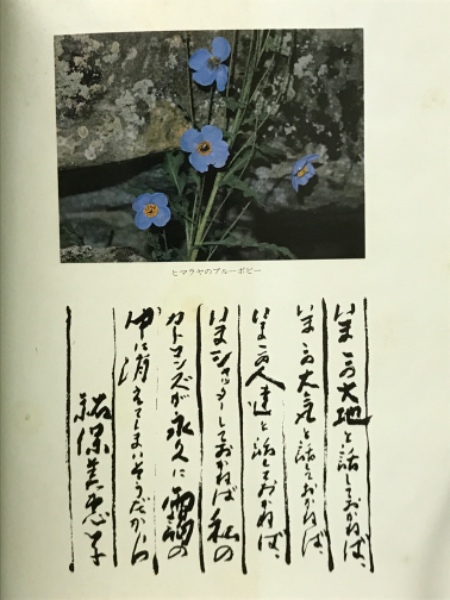 ヒマラヤのブルーポピー
いまこの大地と話しておかねば、
いまこの大気と話しておかねば、
いまこの人達と話しておかねば、
いまシャッターしておかねば私の
カトマンズが永久に霧の
中に消えてしまいそうだから